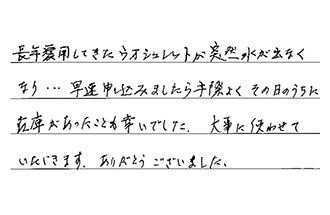 長年愛用してきたウオシュレットが突然水が出なく
なり… 早速申し込みましたら手際よく その日のうちに
在庫があったことも幸いでした. 大事に使わせて
いただきます. ありがとうございました.